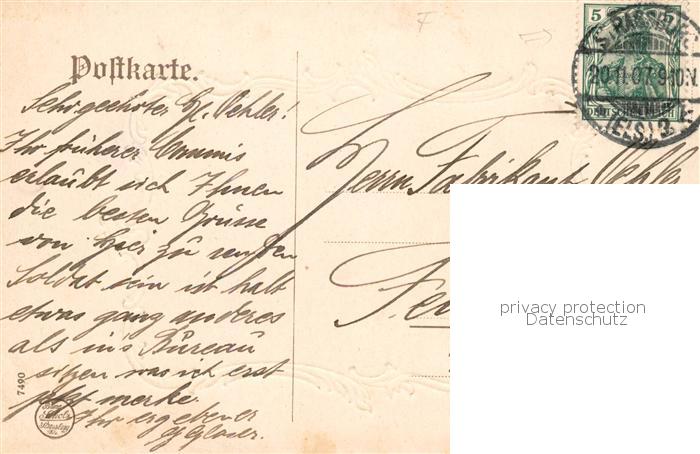 Postkarte.
5
STRASSBURG
20.11.07.9-10.V.
(ELS.) 3.
DEUTSCHES REICH
Sehr geehrter H. Oehler!
Ihr früherer Commis
erlaubt sich Ihnen
die besten Grüsse
von hier zu senden
Soldat sein ist halt
etwas ganz anderes
als in's Büreau
sitzen was ich erst
jetzt merke.
Ihr ergebener
Herrn Fabrikant Oehler
privacy protection
Datenschutz
7490